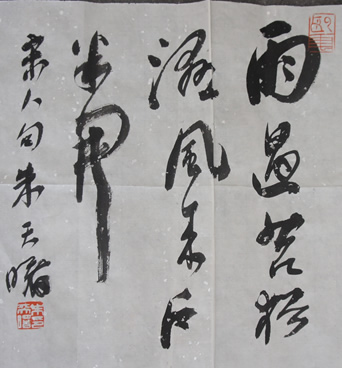 雨過苔猶
濕風来戶
半開
宋人句朱天曙